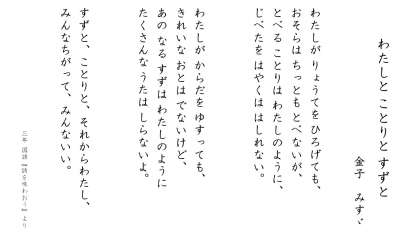 わたしと ことりと すずと
金子 みすゞ
わたしが りょうてを ひろげても、
おそらは ちっとも とべないが、
とべる ことりは わたしのように、
じべたを はやくは はしれない。
わたしが からだを ゆすっても、
きれいな おとは でないけど、
あの なる すずは わたしのように
たくさんな うたは しらないよ。
すずと、ことりと、それから わたし、
みんな ちがって、みんな いい。
三年 国語 『詩を味わおう』 より